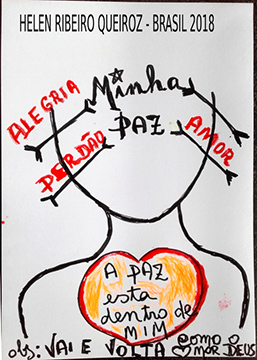 HELEN RIBEIRO QUEIROZ - BRASIL 2018
Minha
ALEGRIA
PAZ
AMOR
PERDÃO
A PAZ
esta
dentro de
MIM
obs: VAI E VOLTA COMO O
AMOR DEUS